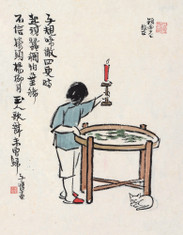 子規啼徹四更時
起視蠶稠怕葉稀
不信樓頭楊柳月玉人歌舞未曾歸